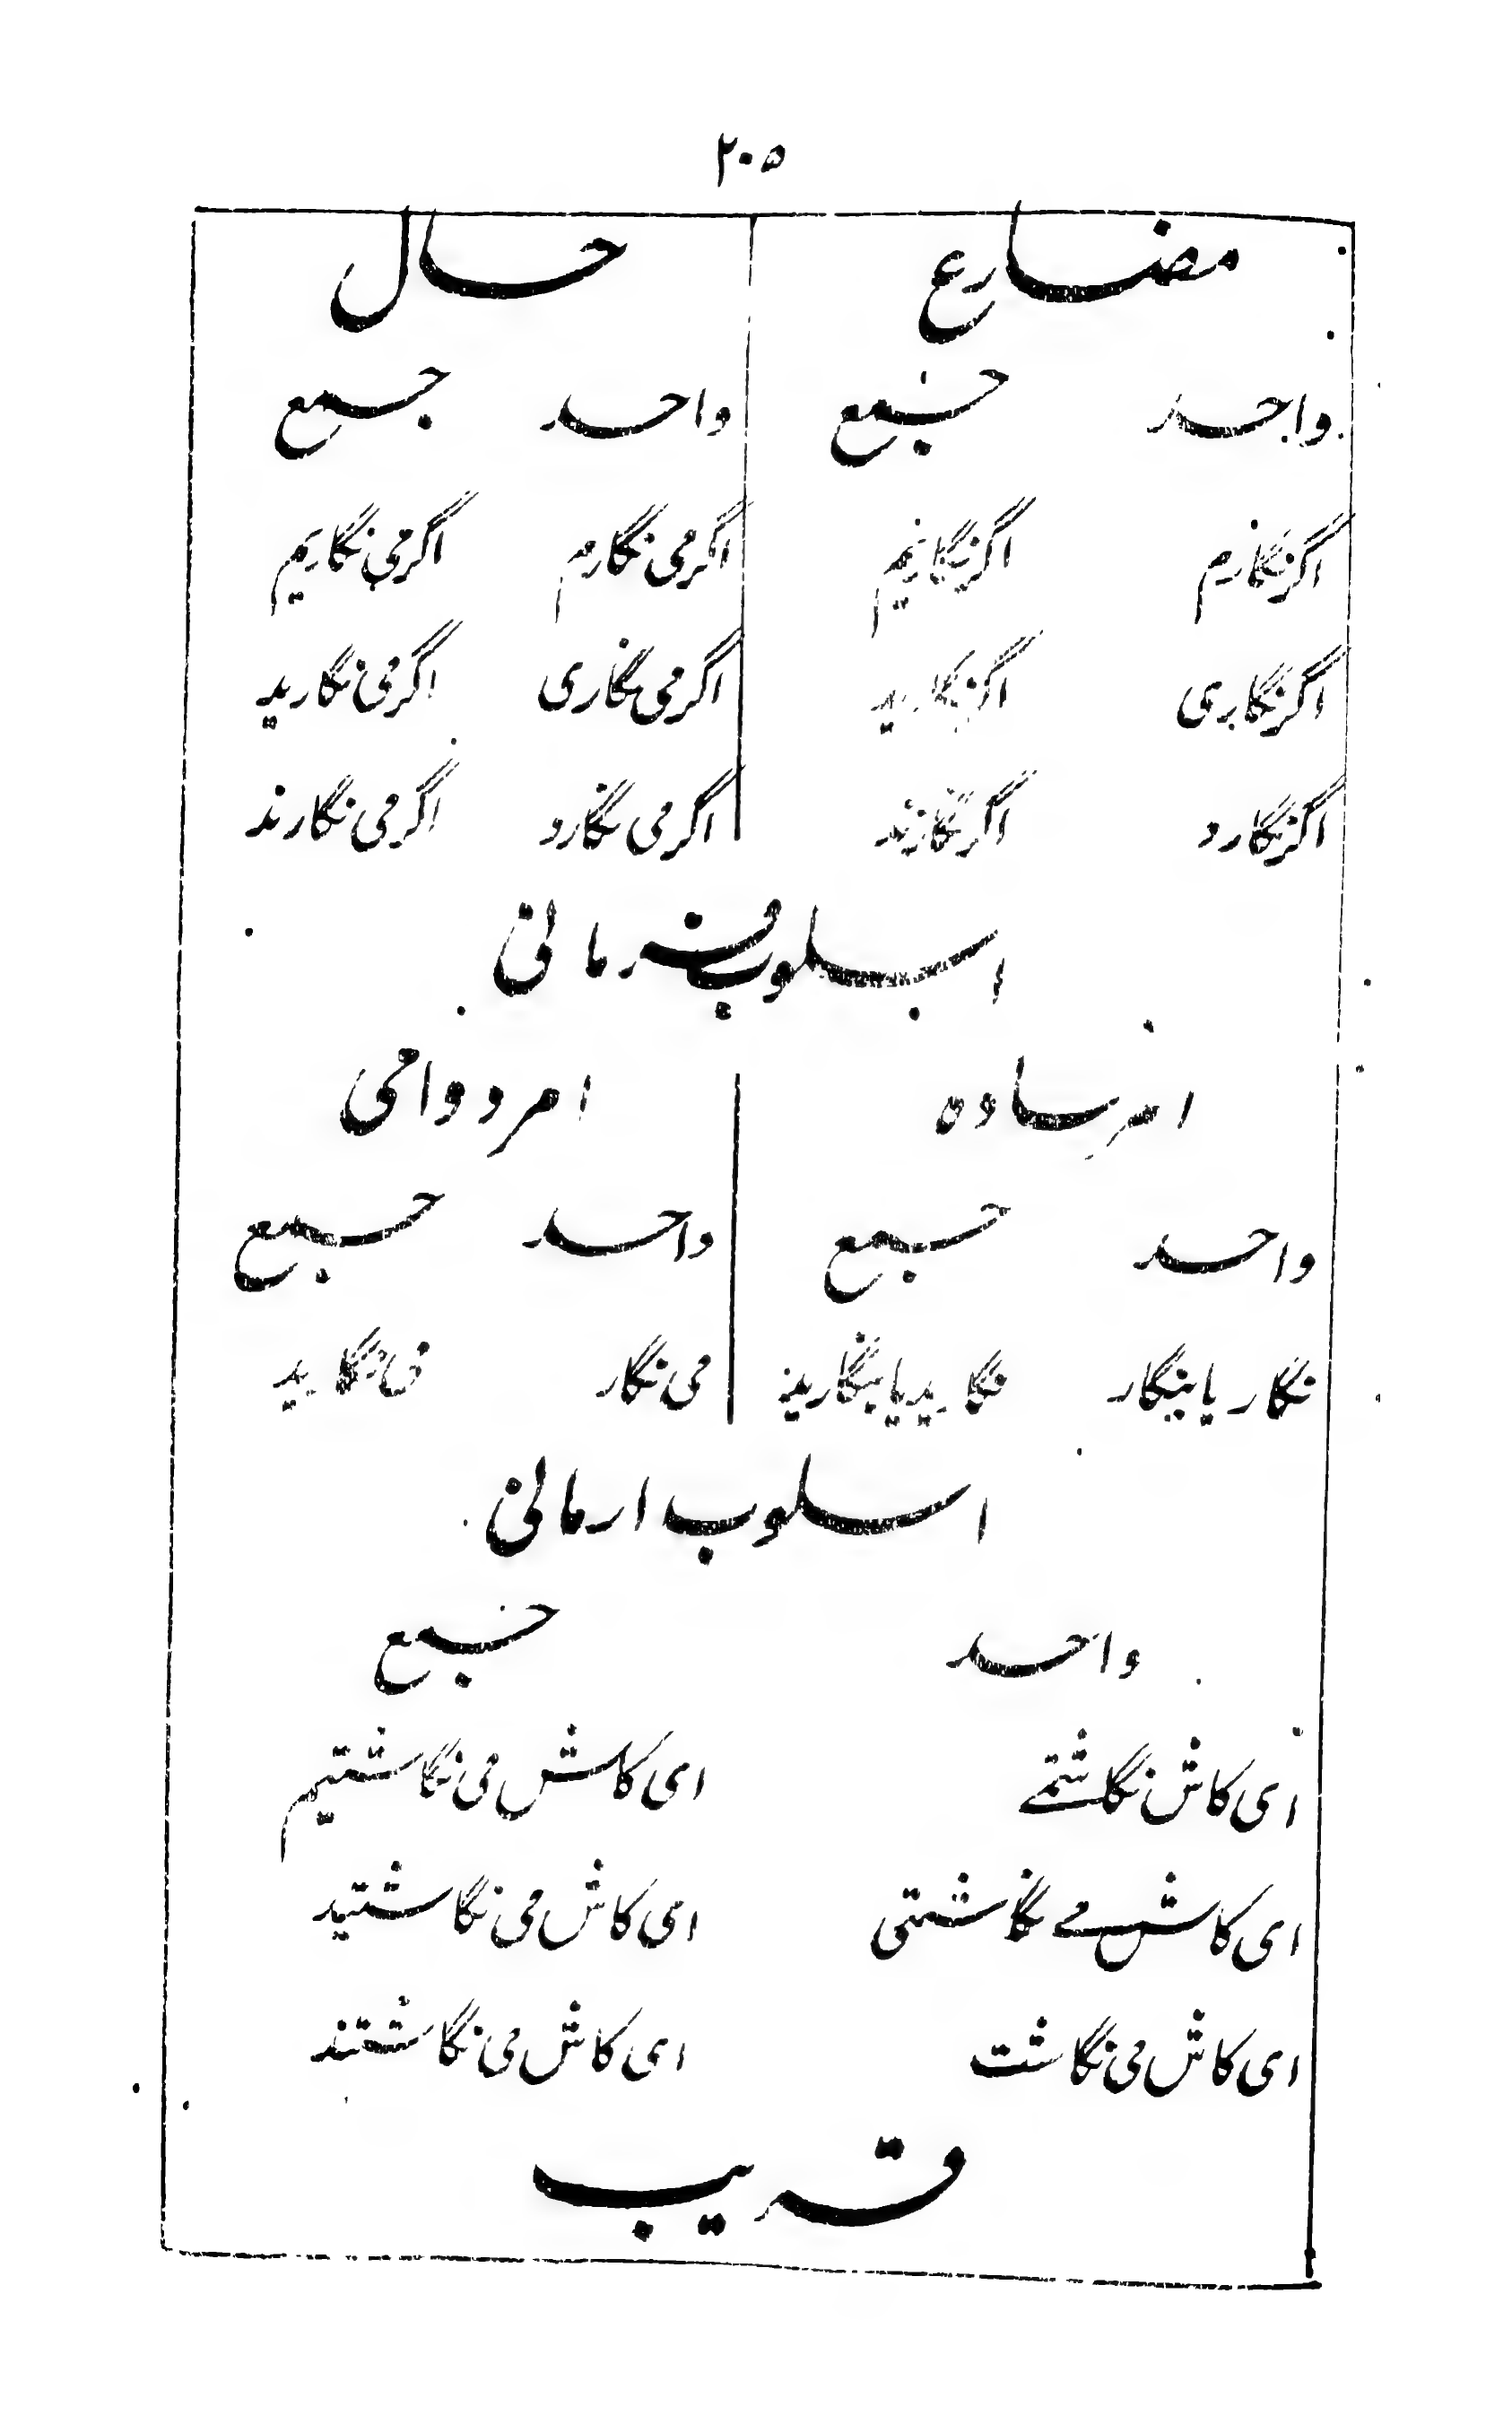 ۲۰۵
مضارع حال
واحد جمع واحد جمع
اگر نگارم اگر نگاریم اگر می نگارم اگر می نگاریم
اگر نگاری اگر نگارید اگر می نگاری اگر می نگارید
اگر نگارد اگر نگارند اگر می نگارد اگر می نگارند
اسلوب فرمانی
امر ساده امر دوامی
واحد جمع واحد جمع
نگار یا بنگار نگارید یا بنگارید می نگار می نگارید
اسلوب ارمانی
واحد جمع
ای کاش نگاشتمے ای کاش می نگاشتیم
ای کاش مے نگاشتی ای کاش می نگاشتید
ای کاش می نگاشت ای کاش می نگاشتند
قریب